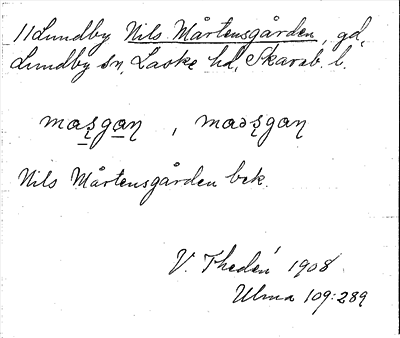 11 Lundby Nils Mårtensgården, gd,
Lundby sn, Laske hd, Skarab. l.
Nils Mårtensgården bek.
V. Thedén 1908
Ulma 109:289